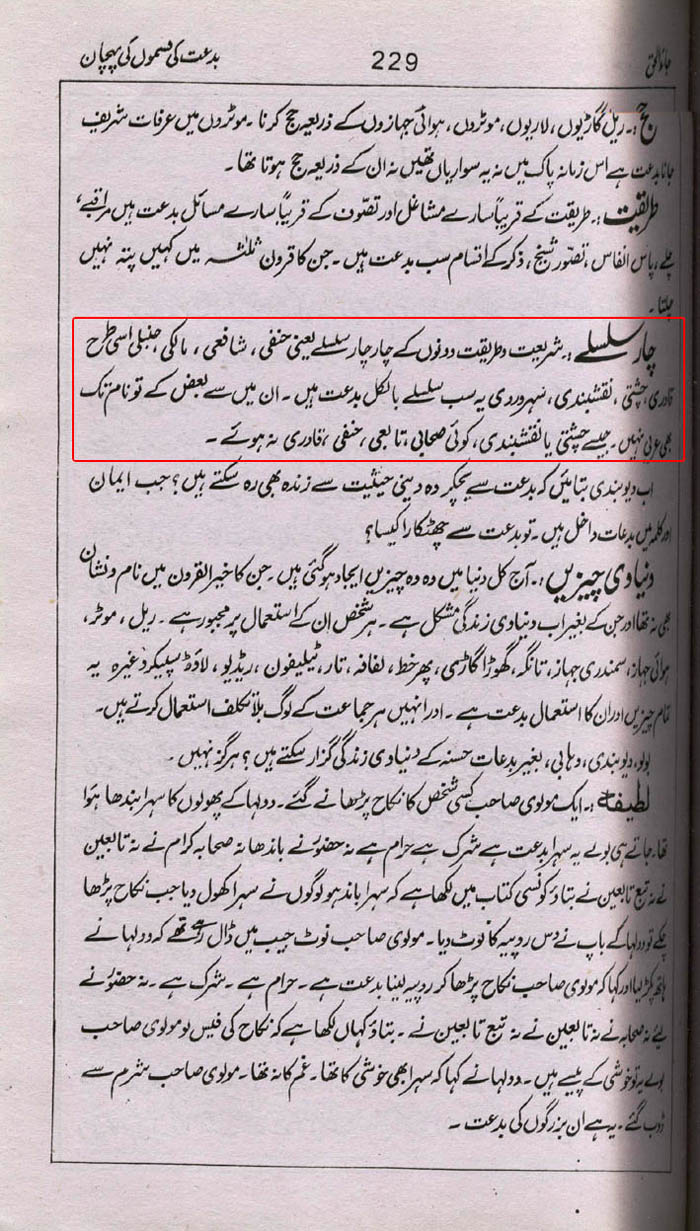 جاءالحق 229 بدعت کی قسموں کی پہچان
حج:۔ ریل گاڑیوں، لاریوں، موٹروں، ہوائی جہازوں کے ذریعہ حج کرنا۔ موٹروں میں عرفات شریف
جانا بدعت ہے اس زمانہ پاک میں نہ یہ سواریاں تھیں نہ ان کے ذریعہ حج ہوتا تھا۔
طریقت:۔ طریقت کے قریباً سارے مشاغل اور تصوف کے قریباً سارے مسائل بدعت ہیں مراقبے،
چلے، پاس انفاس، تصور شیخ، ذکر کے اقسام سب بدعت ہیں۔ جن کا قرون ثلثہ میں کہیں پتہ نہیں
چلتا۔
چار سلسلے:۔ شریعت و طریقت دونوں کے چار چار سلسلے یعنی حنفی، شافعی، مالکی، حنبلی اسی طرح
قادری، چشتی، نقشبندی، سہروردی یہ سب سلسلے بالکل بدعت ہیں۔ ان میں سے بعض کے تو نام تک
بھی عربی نہیں۔ جیسے چشتی یا نقشبندی، کوئی صحابی، تابعی، حنفی، قادری نہ ہوئے۔
اب دیوبندی بتائیں کہ بدعت سے بچکر وہ دینی حیثیت سے زندہ بھی رہ سکتے ہیں؟ جب ایمان
اور کلمہ میں بدعات داخل ہیں۔ تو بدعت سے چھٹکارا کیسا؟
دنیاوی چیزیں:۔ آج کل دنیا میں وہ وہ چیزیں ایجاد ہو گئی ہیں۔ جن کا خیر القرون میں نام و نشان
بھی نہ تھا اور جن کے بغیر اب دنیاوی زندگی مشکل ہے۔ ہر شخص ان کے استعمال پر مجبور ہے۔ ریل، موٹر،
ہوائی جہاز، سمندری جہاز، تانگہ، گھوڑا گاڑی، پھر خط، لفافہ، تار، ٹیلیفون، ریڈیو، لاؤڈ سپیکر وغیرہ یہ
تمام چیزیں اور ان کا استعمال بدعت ہے۔ اور انہیں ہر جماعت کے لوگ بلا تکلف استعمال کرتے ہیں۔
بولو، دیوبندی، وہابی، بغیر بدعات حسنہ کے دنیاوی زندگی گزار سکتے ہیں؟ ہرگز نہیں۔
لطیفہ:۔ ایک مولوی صاحب کسی شخص کا نکاح پڑھانے گئے۔ دولہا کے پھولوں کا سہرا بندھا ہوا
تھا۔ جاتے ہی بولے یہ سہرا بدعت ہے شرک ہے حرام ہے نہ حضور نے باندھا نہ صحابہ کرام نے نہ تابعین
نے نہ تبع تابعین نے بتاؤ کونسی کتاب میں لکھا ہے کہ سہرا باندھو لوگوں نے سہرا کھول دیا جب نکاح پڑھا
چکے تو دولہا کے باپ نے دس روپیہ کا نوٹ دیا۔ مولوی صاحب نوٹ جیب میں ڈال رہے تھے کہ دولہا نے
ہاتھ پکڑ لیا اور کہا کہ مولوی صاحب نکاح پڑھا کر روپیہ لینا بدعت ہے۔ حرام ہے۔ شرک ہے۔ نہ حضور نے
لیے نہ صحابہ نے نہ تابعین نے نہ تبع تابعین نے۔ بتاؤ کہاں لکھا ہے کہ نکاح کی فیس لو مولوی صاحب
بولے یہ تو خوشی کے پیسے ہیں۔ دولہا نے کہا کہ سہرا بھی خوشی کا تھا۔ غم کا نہ تھا۔ مولوی صاحب شرم سے
ڈوب گئے۔ یہ ہے ان بزرگوں کی بدعت۔